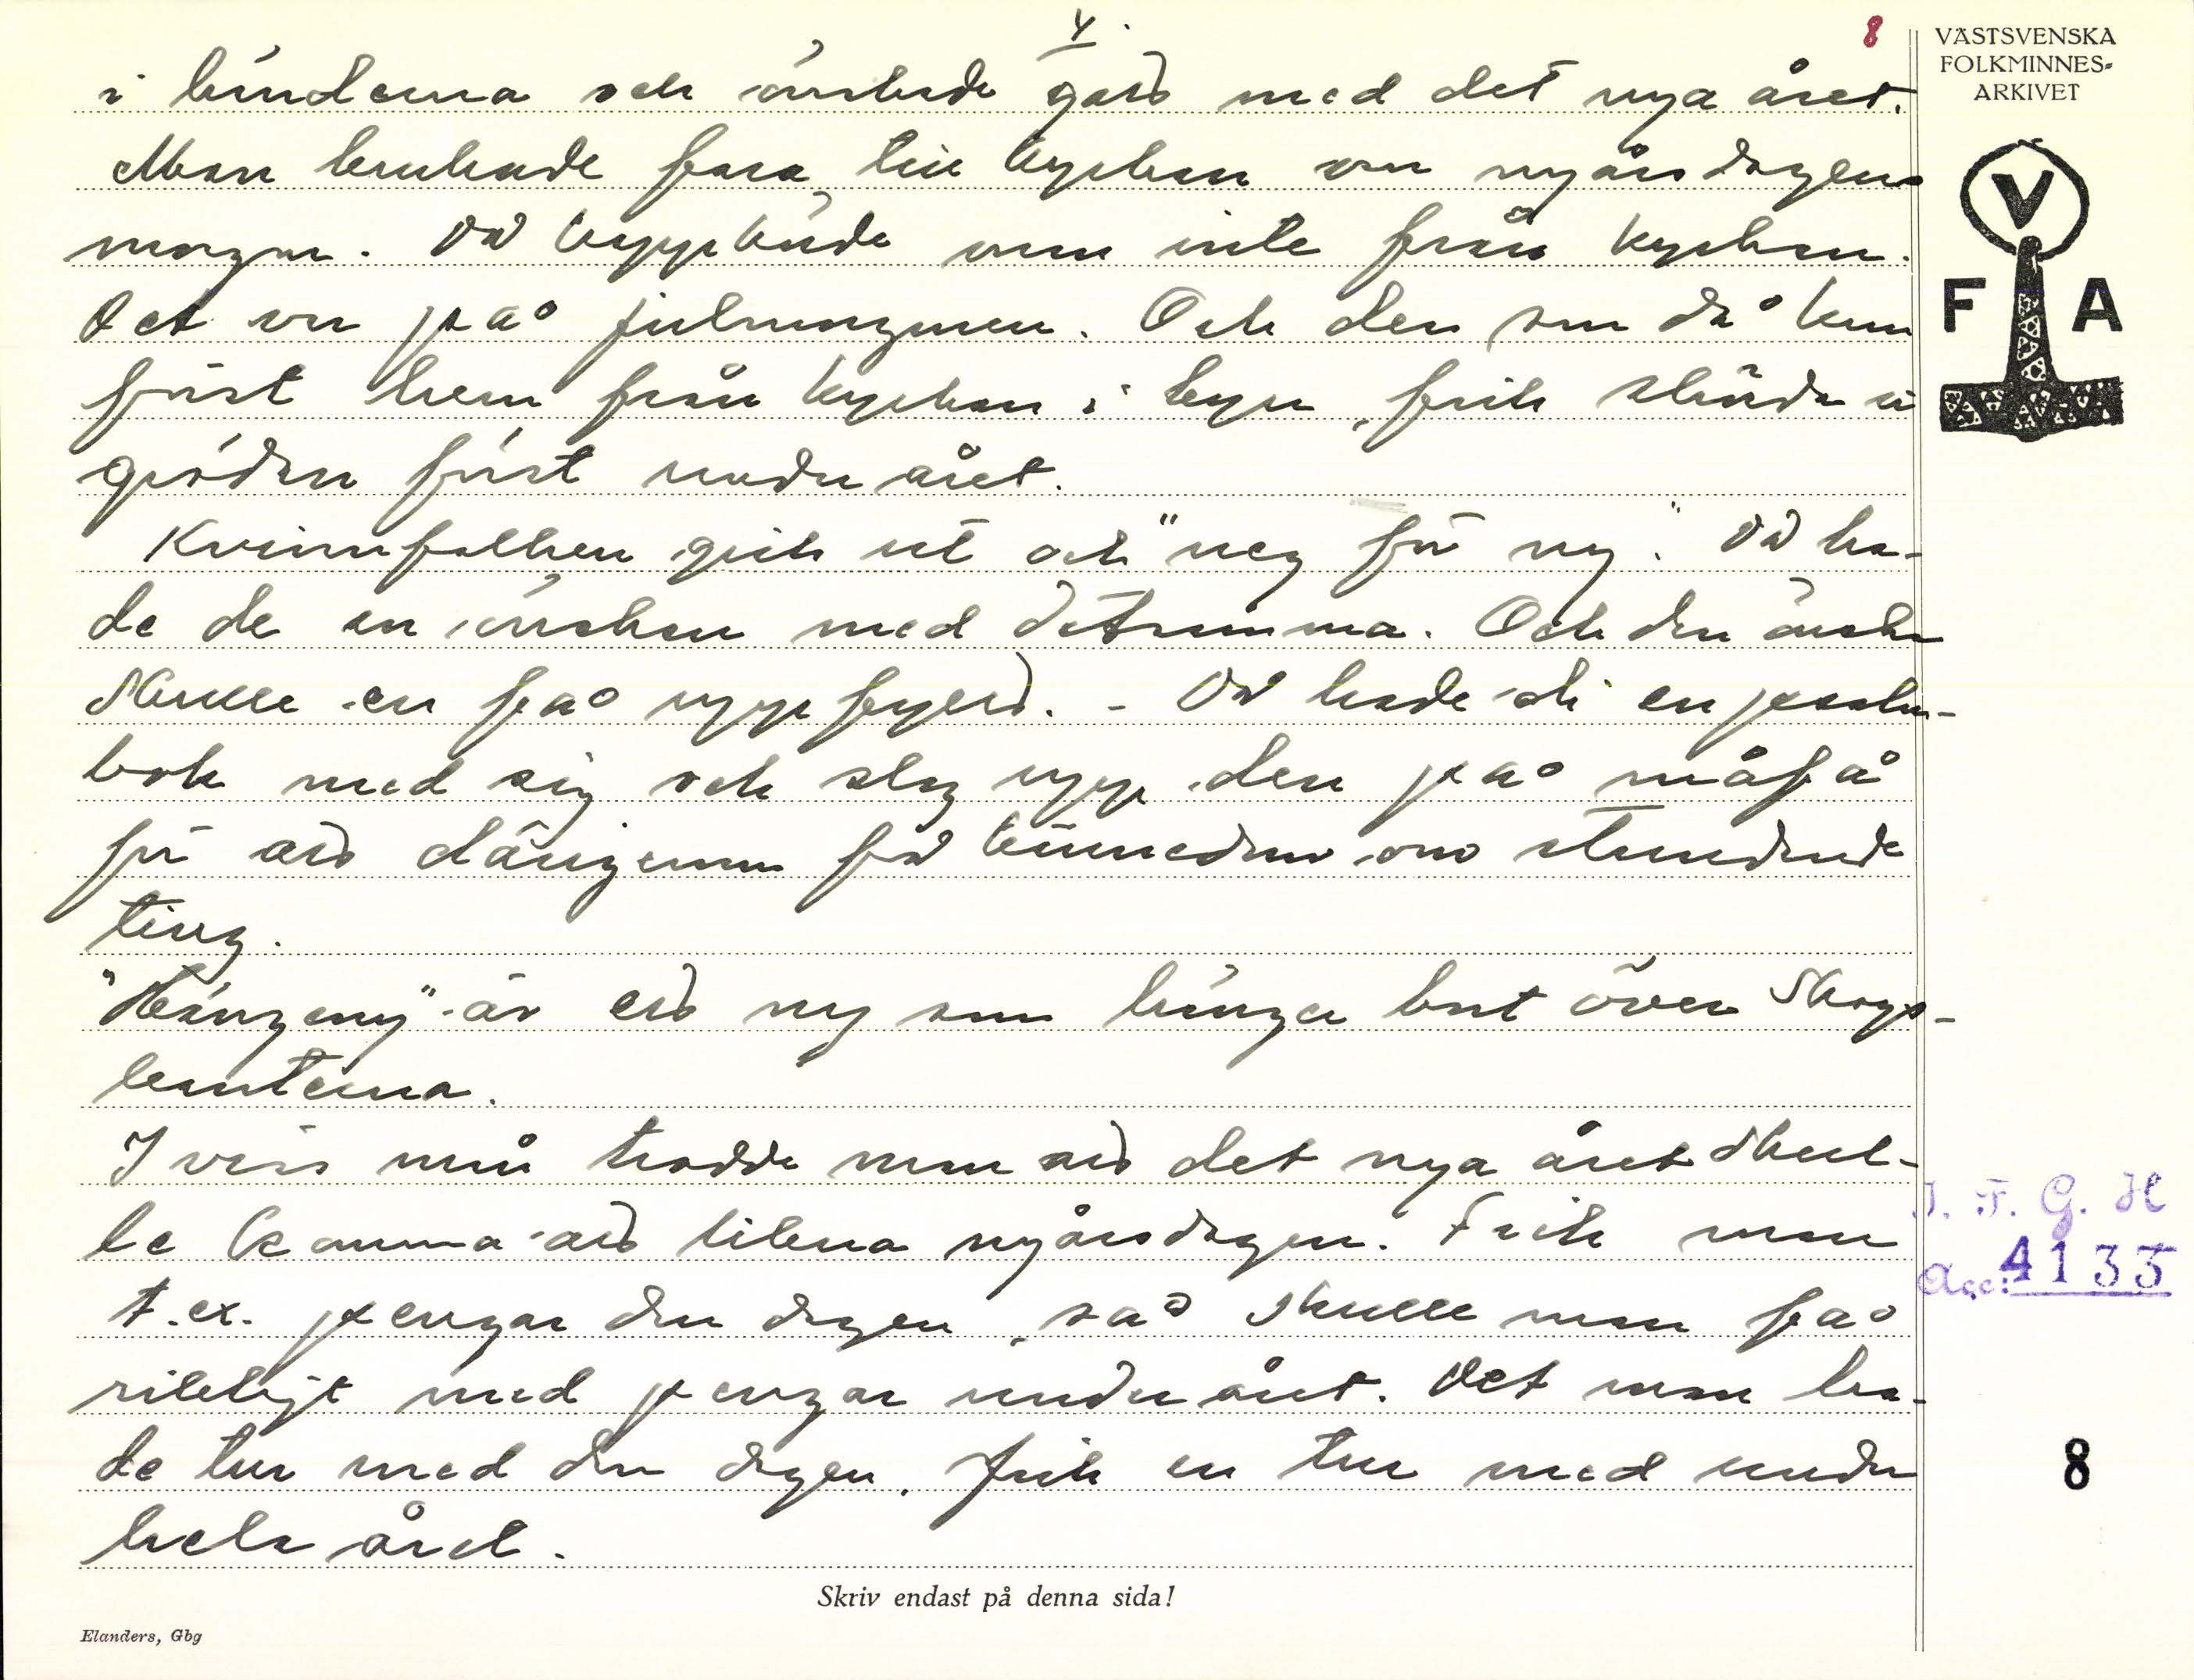 4.
8
i händerna och önskade gott med det nya året.
Man brukade fara till kyrkan om nyårsdagens
morgon. Då kappkörde man inte från kyrkan.
Det var på julmorgonen. Och den som då kom
först hem från kyrkan i byn, fick skörda in
gröden först under året.
Kvinnfolken gick ut och "neg för ny". Då ha-
de de en önskan med detsamma. Och den önskan
skulle en få uppfylld. - Då hade di en psalm-
bok med sig och slog upp den på måfå
för att därigenom få kännedom om stundande
ting.
"Hängeny" är ett ny som hänger bort över skogs-
kanterna.
I viss mån trodde man att det nya året skul-
le komma att likna nyårsdagen. Fick man
t.ex. pengar den dagen, så skulle man få
rikligt med pengar under året. Det man ha-
de tur med den dagen, fick en tur med under
hela året.
Skriv endast på denna sida!
Elanders, Gbg
VÄSTSVENSKA
FOLKMINNES-
ARKIVET
V
F A
I. F. G. H
Acc: 4133
8